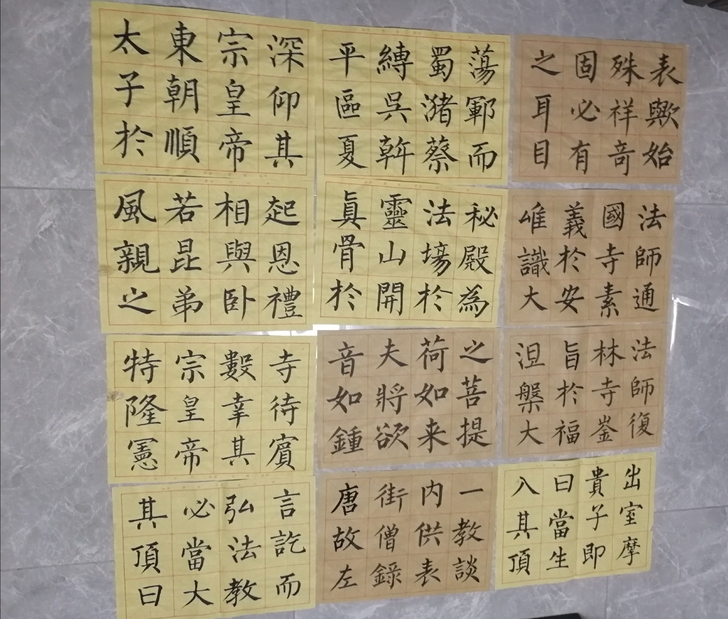 太子於
東朝順
宗皇帝
深仰其
平區夏
縛吳斡
蜀潴蔡
蕩鄆而
之耳目
固必有
殊祥奇
表歟始
風親之
若昆弟
相與卧
起恩禮
真骨於
靈山開
法場於
秘殿為
唯識大
義於安
國寺素
法師通
特隆憲
宗皇帝
數幸其
寺待賓
音如鍾
夫將欲
荷如来
之菩提
涅槃大
旨於福
林寺崟
法師復
其頂曰
必當大
弘法教
言訖而
唐故左
街僧錄
内供表
一教談
入其頂
曰當生
貴子即
出室摩